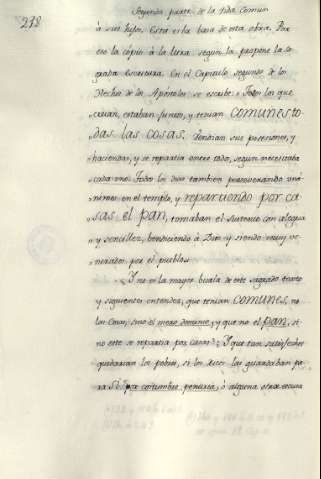 232
Segunda parte de la Vida Comun
à sus hijos. Esta es la basa de esta obra. Por
eso la copio à la letra segun la propone la sa-
grada Escritura. En el Capitulo segundo de los
Hechos de los Apostoles se escribe: Todos los que
creian, estaban juntos, y tenian COMUNES TO-
DAS LAS COSAS. Vendian sus posesiones, y
haciendas, y se repartia entre todos, segun necesitaba
cada uno. Todos los dias tambien perseverando uná-
nimes en el templo, y repartiendo por ca-
sas el pan, tomaban el sustento con alegria
y sencillez, bendiciendo à Dios y siendo muy ve-
nerados por el pueblo.
Y no es la mayor burla de este sagrado texto
y siguientes entender, que tenian COMUNES, no
las cosas, sino el mero dominio, y que no el pan, si-
no este se repartia por casas? Y que tan satisfechos
quedarian los pobres, si los decian las guardaban pa-
ra Si por costumbre penuria, ò alguna otra escusa